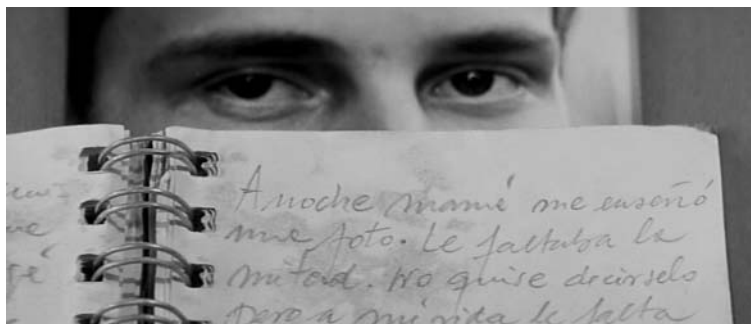 Anoche mamá me enseñó
una foto. Le faltaba la
mitad. No quise decírselo
pero a mi vida le falta